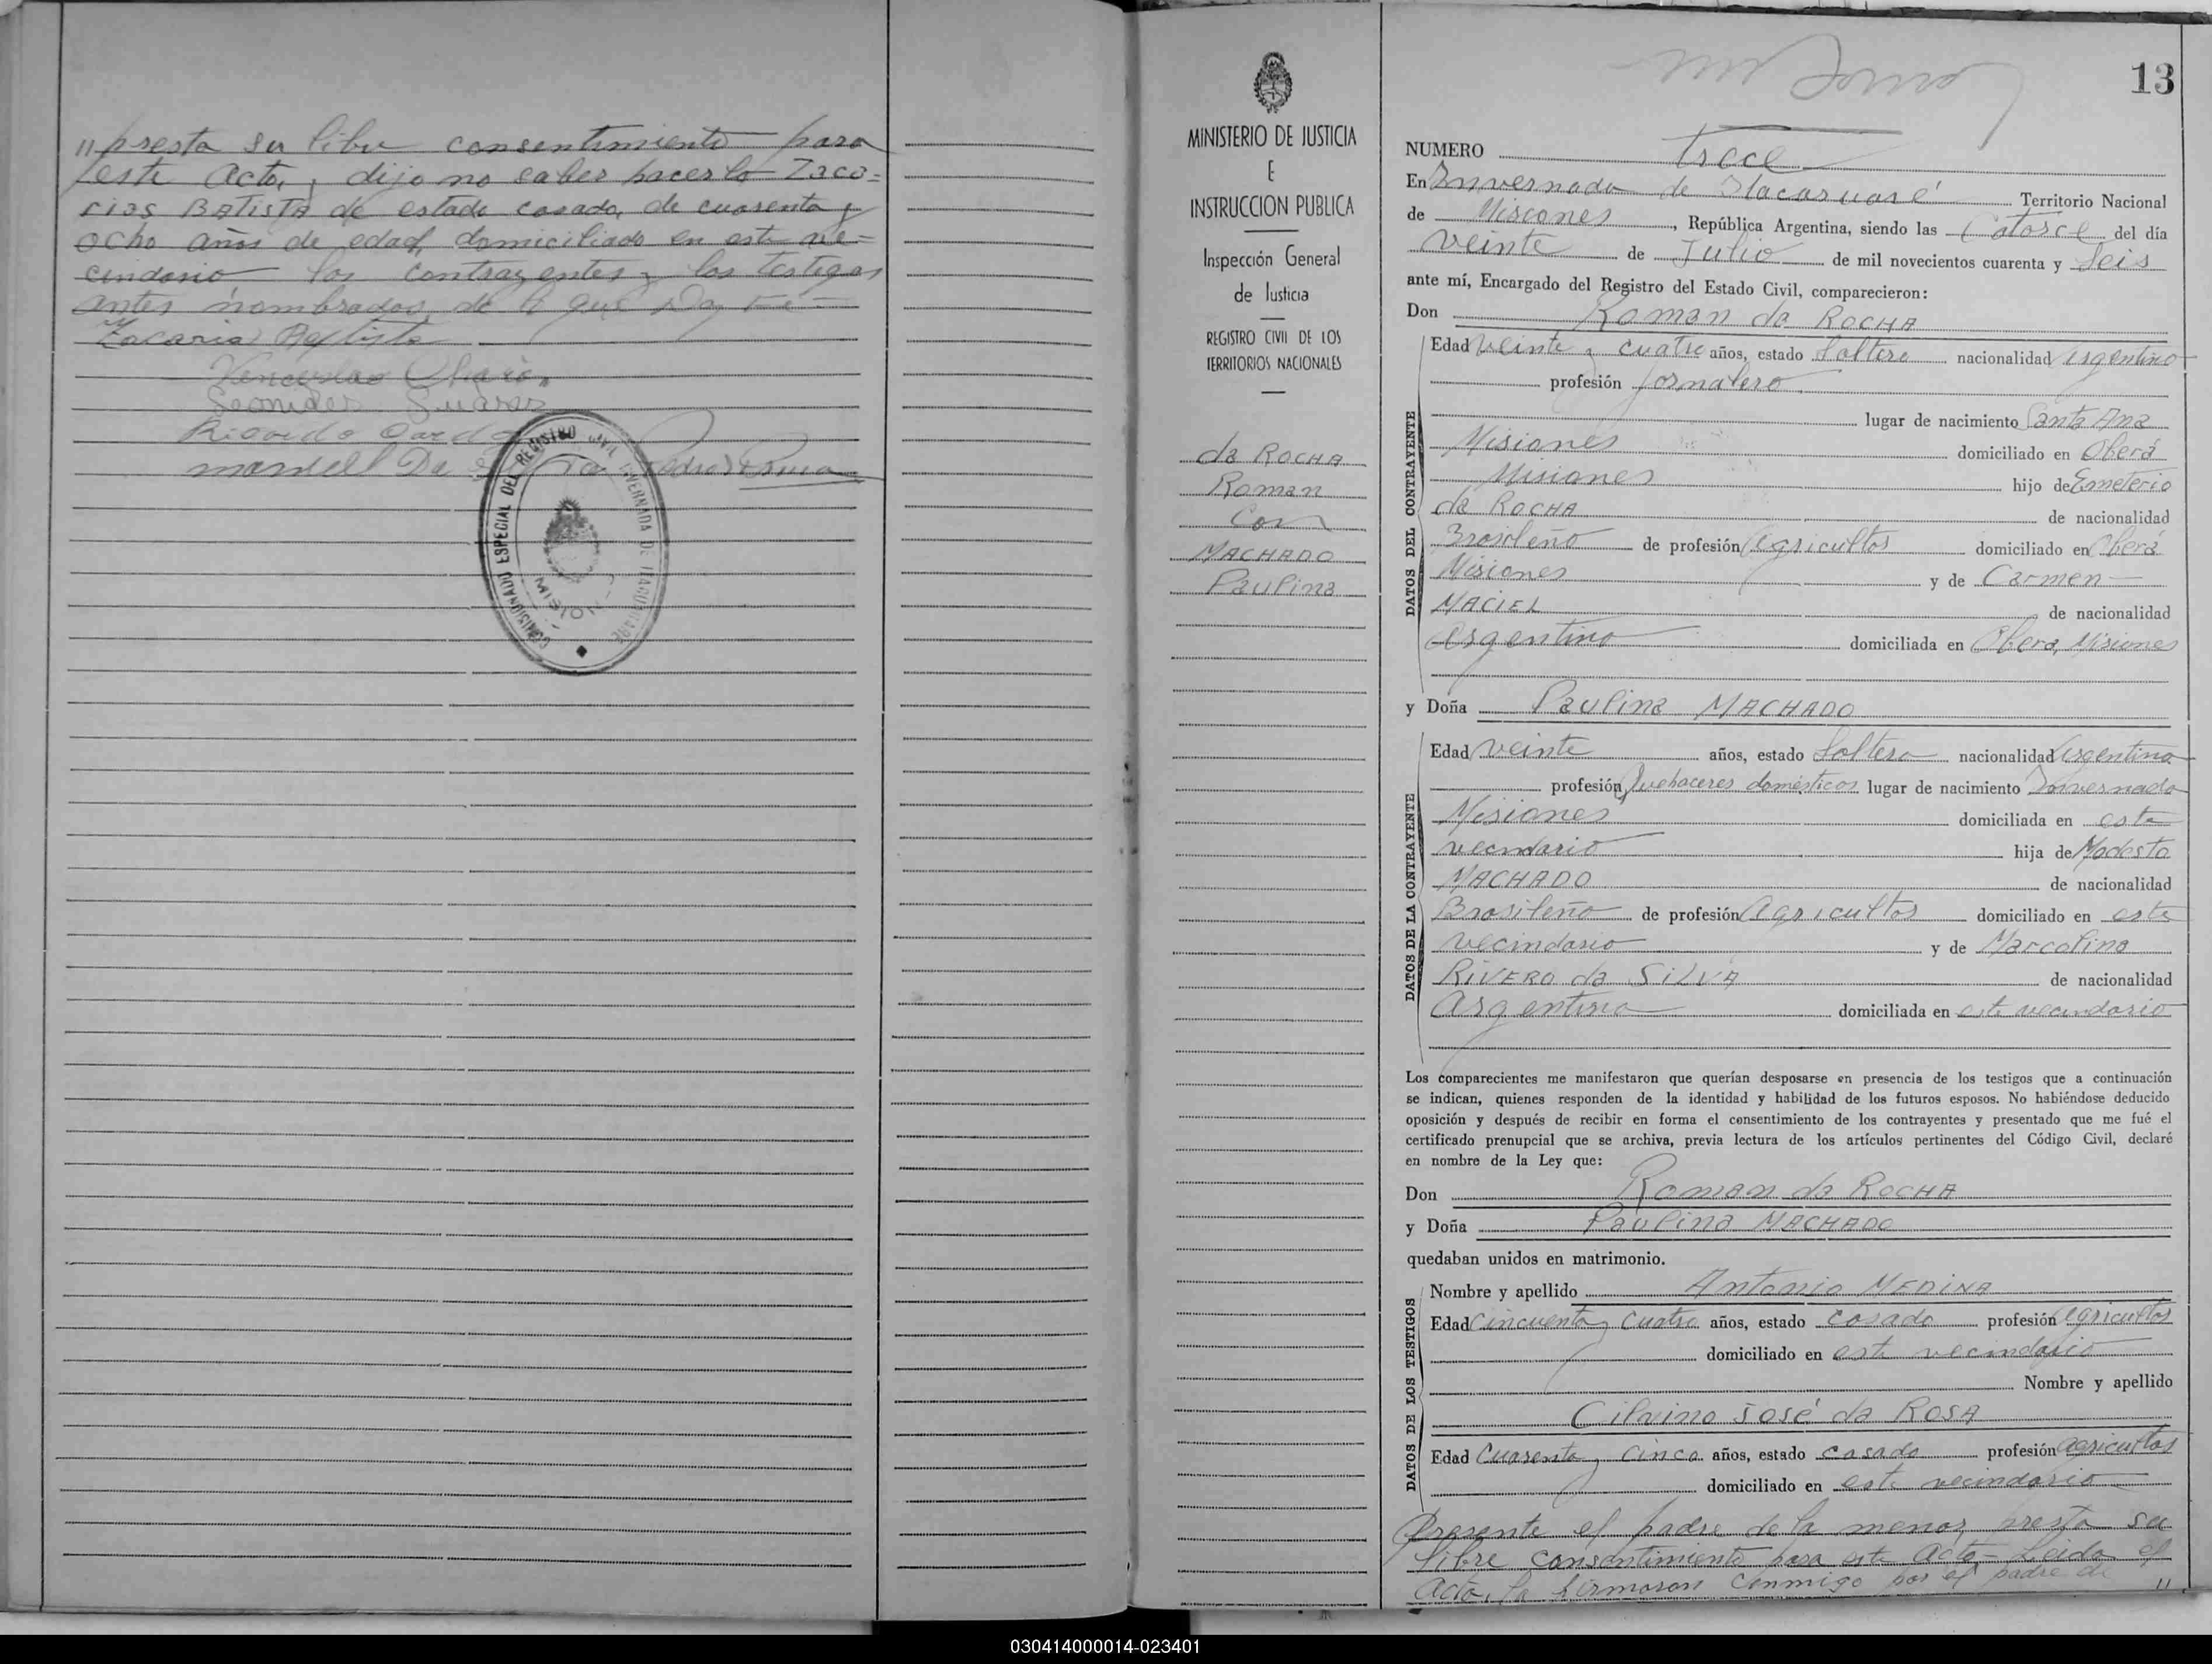 " presta su libre consentimiento para
este Acto, y dijo no saber hacerlo Zaca=
rias BATISTA de estado casado, de cuarenta y
ocho años de edad, domiciliado en este ve=
cindario los contrayentes y los testigos
antes nombrados, de lo que Doy Fé-
Zacaria Batista
Leonides Suarez
Ricardo
manuell Da
COMISIONADO ESPECIAL DEL REGISTRO CIVIL INVERNADA DE ITACARUARE
MISIONES
MINISTERIO DE JUSTICIA
E
INSTRUCCION PUBLICA
Inspección General
de Justicia
REGISTRO CIVIL DE LOS
TERRITORIOS NACIONALES
da ROCHA
Roman
Con
MACHADO
Paulina
13
NUMERO trece
En Invernada de Itacaruaré Territorio Nacional
de Misiones, República Argentina, siendo las Catorce del día
veinte de Julio de mil novecientos cuarenta y Seis
ante mí, Encargado del Registro del Estado Civil, comparecieron:
Don Roman da ROCHA
DATOS DEL CONTRAYENTE
Edad veinte y cuatro años, estado Soltero nacionalidad Argentino
profesión Jornalero
lugar de nacimiento Santa Ana
Misiones domiciliado en Oberá
Misiones hijo de Emeterio
da ROCHA de nacionalidad
Brasileño de profesión Agricultor domiciliado en Oberá
Misiones y de Carmen
MACIEL de nacionalidad
argentina domiciliada en Oberá, Misiones
y Doña Paulina MACHADO
DATOS DE LA CONTRAYENTE
Edad veinte años, estado Soltera nacionalidad Argentina
profesión Quehaceres domésticos lugar de nacimiento Invernada
Misiones domiciliada en este
vecindario hija de Modesto
MACHADO de nacionalidad
Brasileño de profesión Agricultor domiciliado en este
vecindario y de Marcolina
RIVERO da SILVA de nacionalidad
Argentina domiciliada en este vecindario
Los comparecientes me manifestaron que querían desposarse en presencia de los testigos que a continuación
se indican, quienes responden de la identidad y habilidad de los futuros esposos. No habiéndose deducido
oposición y después de recibir en forma el consentimiento de los contrayentes y presentado que me fué el
certificado prenupcial que se archiva, previa lectura de los artículos pertinentes del Código Civil, declaré
en nombre de la Ley que:
Don Roman da ROCHA
y Doña Paulina MACHADO
quedaban unidos en matrimonio.
DATOS DE LOS TESTIGOS
Nombre y apellido Antonio MEDINA
Edad Cincuenta y Cuatro años, estado casado profesión agricultor
domiciliado en este vecindario
Nombre y apellido
Cilvino José da ROSA
Edad Cuarenta y Cinco años, estado casado profesión agricultor
domiciliado en este vecindario
Presente el padre de la menor, presta su
libre consentimiento para este Acto- Leida el
Acta, la firmaron conmigo por el padre de "
030414000014-023401